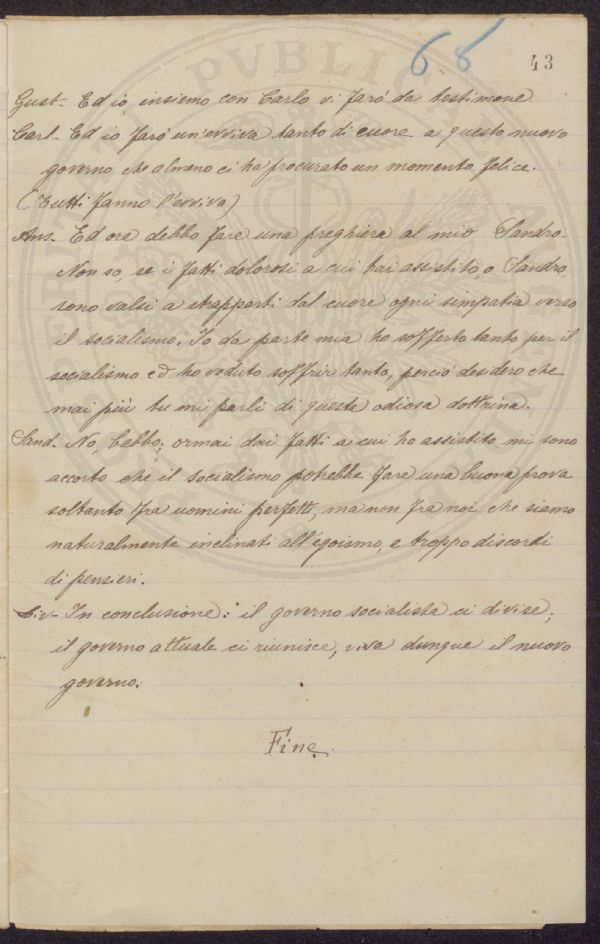 68
43
Gust. Ed io, insieme con Carlo vi farò da testimone
Carl. Ed io farò un'evviva tanto di cuore a questo nuovo
governo, che almeno ci ha procurato un momento felice.
(Tutti fanno l'evviva)
Ans. Ed ora debbo fare una preghiera al mio Sandro.
Non so, se i fatti dolorosi a cui hai assistito, o Sandro,
sono valsi a strapparti dal cuore ogni simpatia verso
il socialismo. Io da parte mia ho sofferto tanto per il
socialismo ed ho veduto soffrir tanto, perciò desidero che
mai più tu mi parli di queste odiosa dottrina.
Sand. No, babbo; ormai dai fatti a cui ho assistito mi sono
accorto che il socialismo potrebbe fare una buona prova
soltanto fra uomini perfetti, ma non fra noi che siamo
naturalmente inclinati all'egoismo, e troppo discordi
di pensieri.
Liv- In conclusione: il governo socialista ci divise;
il governo attuale ci riunisce, viva dunque il nuovo
governo.
Fine.